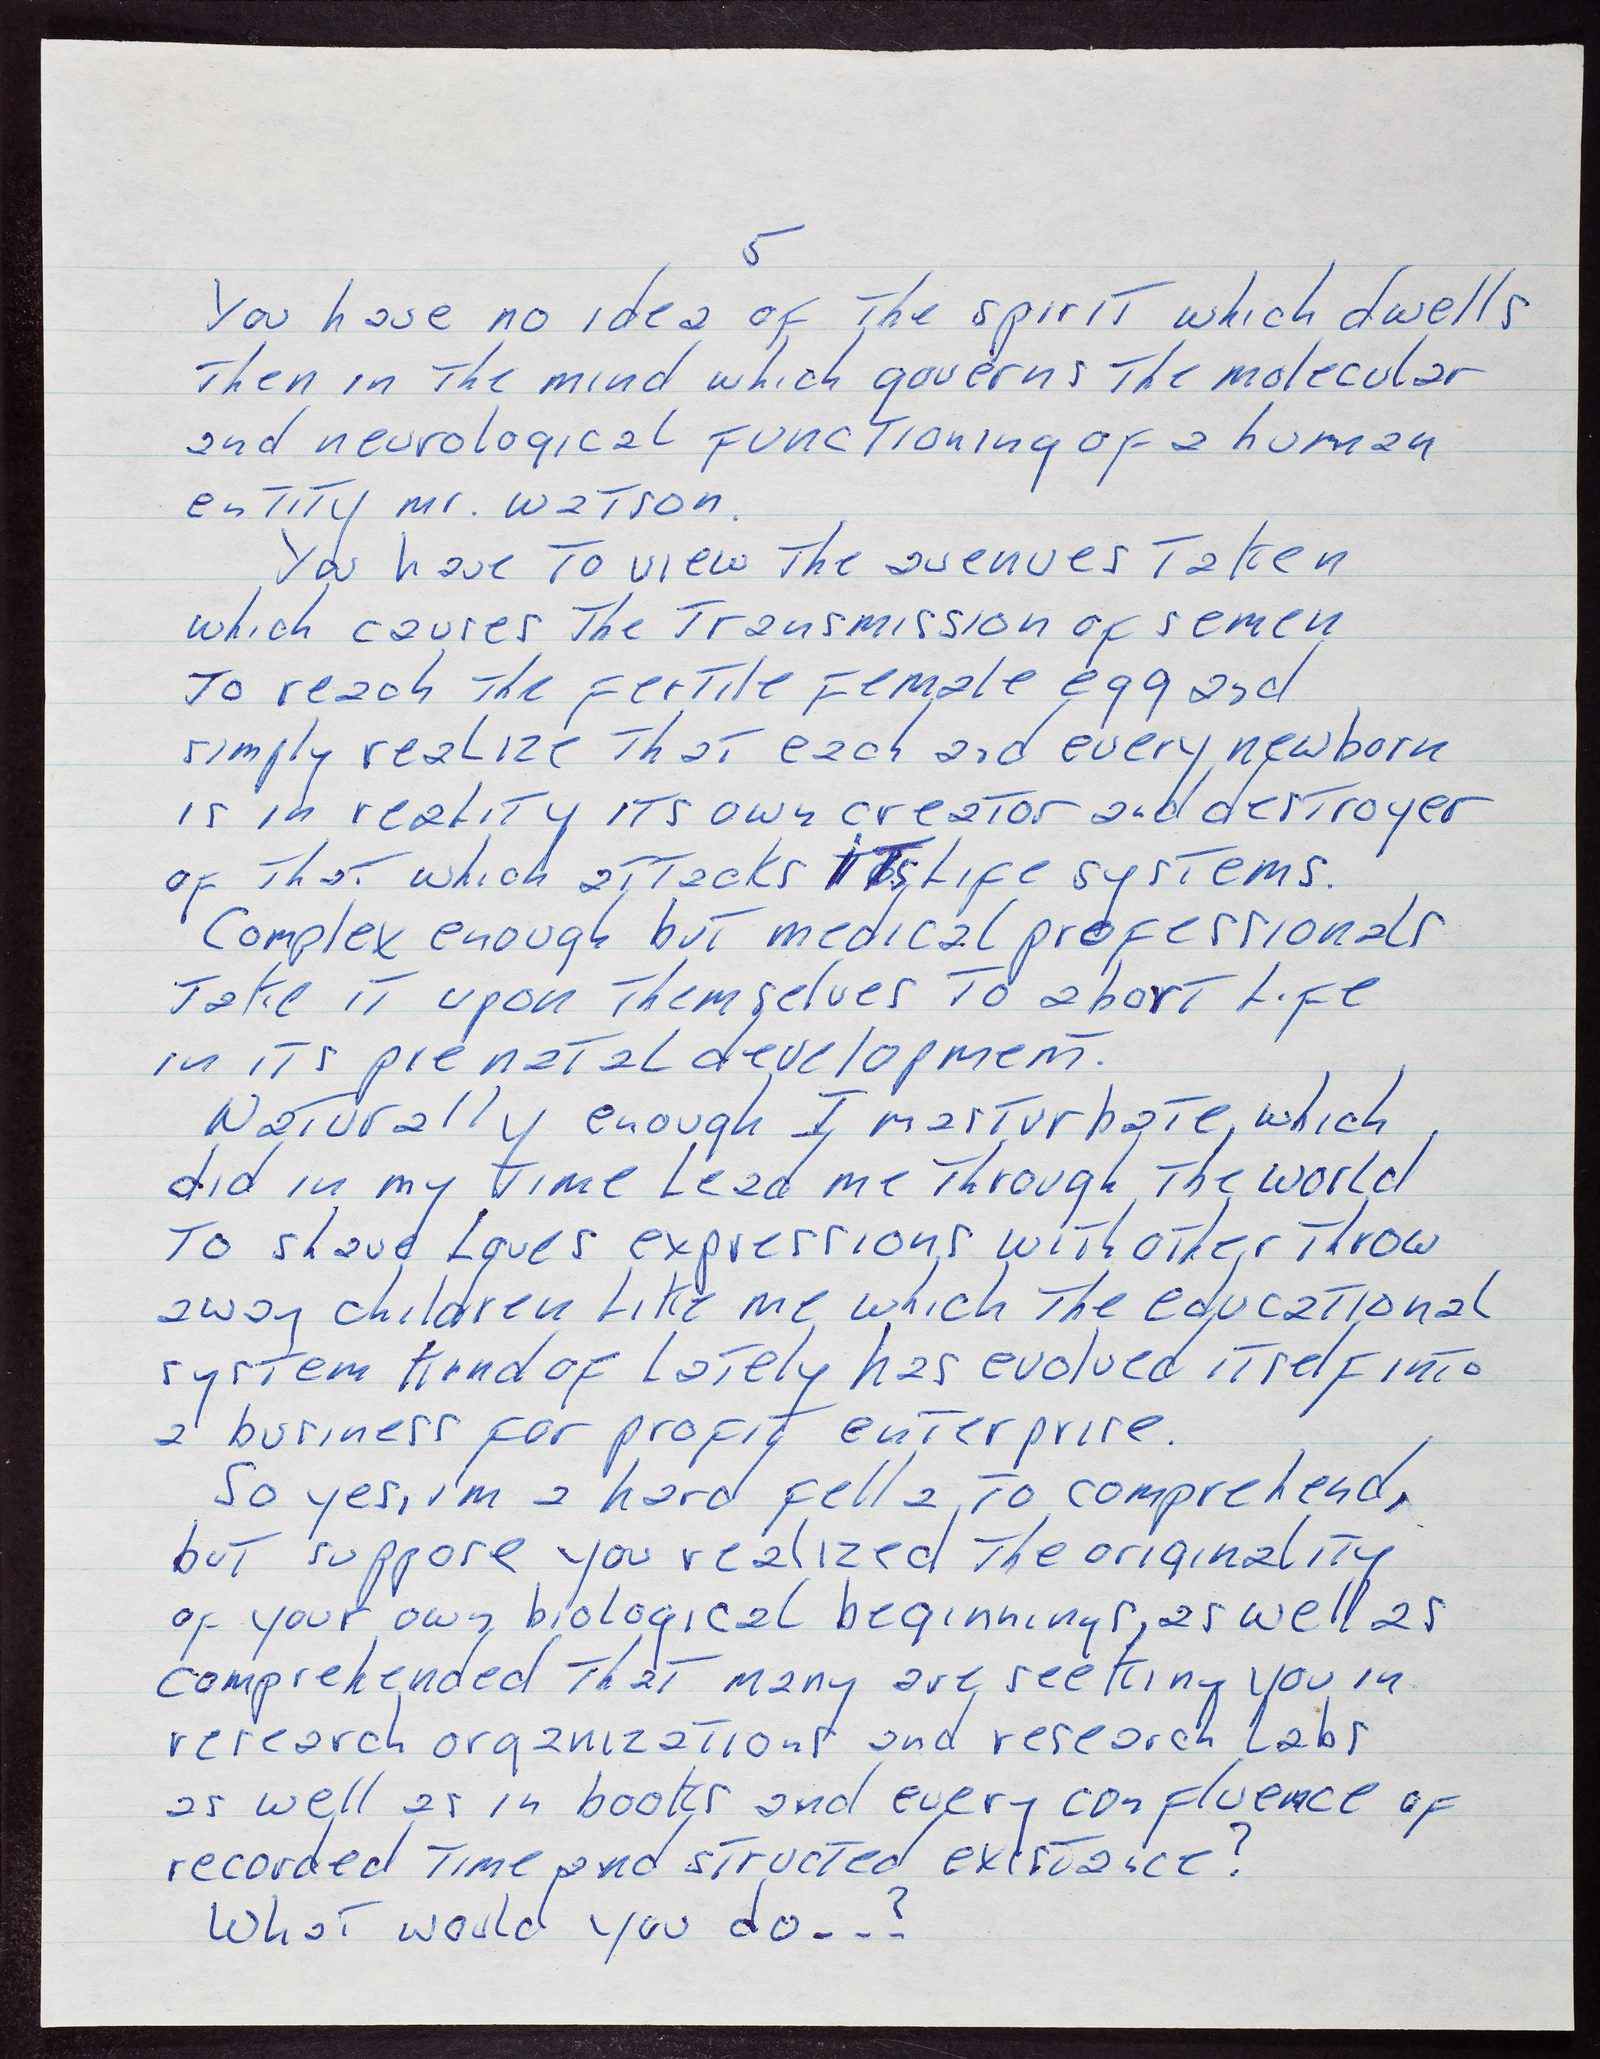 5
You have no idea of the spirit which dwells
then in the mind which governs the molecular
and neurological functioning of a human
entity mr. watson.
You have to view the avenues taken
which causes the transmission of semen
to reach the fertile female egg and
simply realize that each and every newborn
is in reality its own creator and destroyer
of that which attacks its life systems.
Complex enough but medical professionals
take it upon themselves to abort life
in its prenatal development.
Naturally enough I masturbate, which
did in my time lead me through the world
to share loves expressions with other throw
away children like me which the educational
system kind of lately has evolved itself into
a business for profit enterprise.
So yes, im a hard fella to comprehend,
but suppose you realized the originality
of your own biological beginnings, as well as
comprehended that many are seeking you in
research organizations and research labs
as well as in books and every confluence of
recorded time and structed existance?
What would you do---?